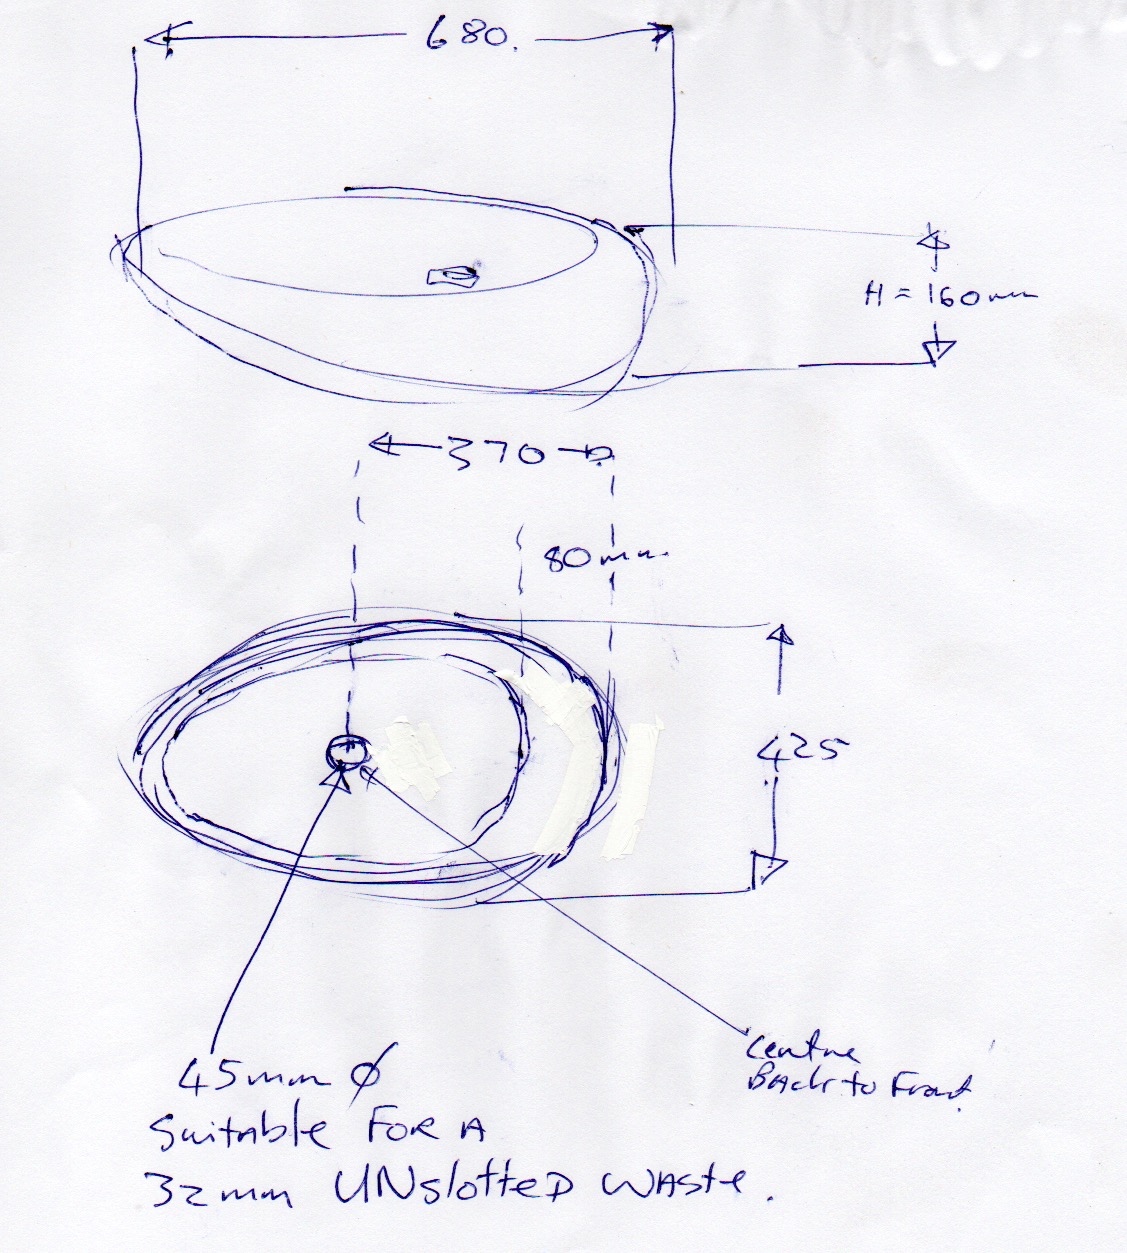 680.
H = 160mm
370
80mm
425
Centre
Back to Front
45mm Ø
Suitable FOR A
32mm UNslotteD WAste.